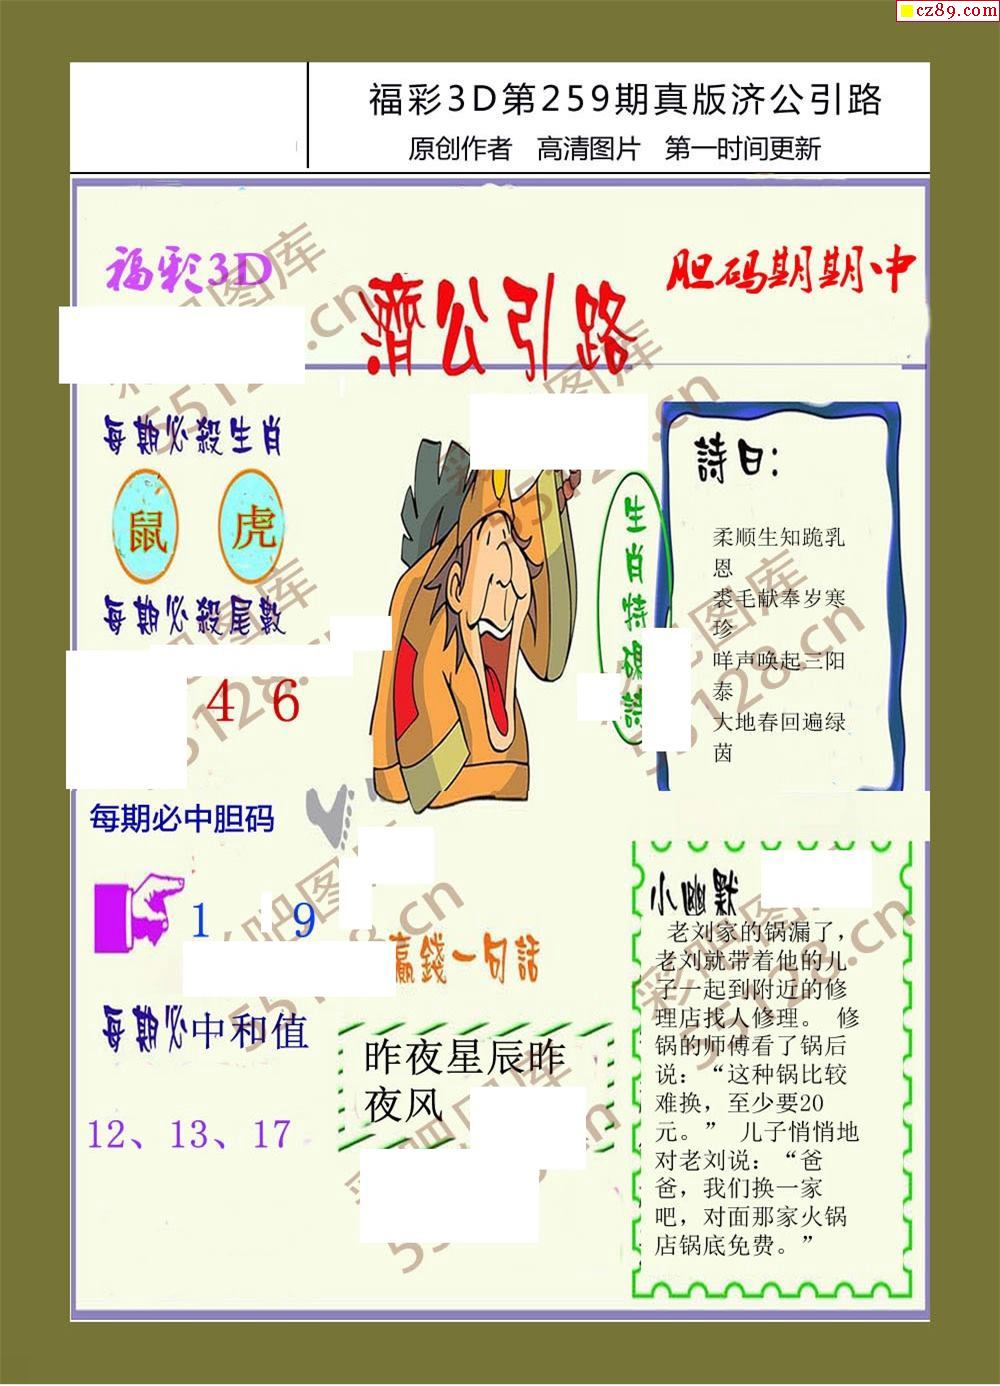 cz89.com
福彩3D第259期真版济公引路
原创作者 高清图片 第一时间更新
福彩3D
胆码期期中
濟公引路
每期必殺生肖
鼠 虎
每期必殺尾數
4 6
每期必中胆码
1 9
每期必中和值
12、13、17
生肖特碼詩
詩曰：
柔顺生知跪乳
恩
裘毛献奉岁寒
珍
咩声唤起三阳
泰
大地春回遍绿
茵
贏錢一句話
昨夜星辰昨
夜风
小幽默
老刘家的锅漏了，
老刘就带着他的儿
子一起到附近的修
理店找人修理。 修
锅的师傅看了锅后
说：“这种锅比较
难换，至少要20
元。” 儿子悄悄地
对老刘说：“爸
爸，我们换一家
吧，对面那家火锅
店锅底免费。”
彩吧图库
55128.cn